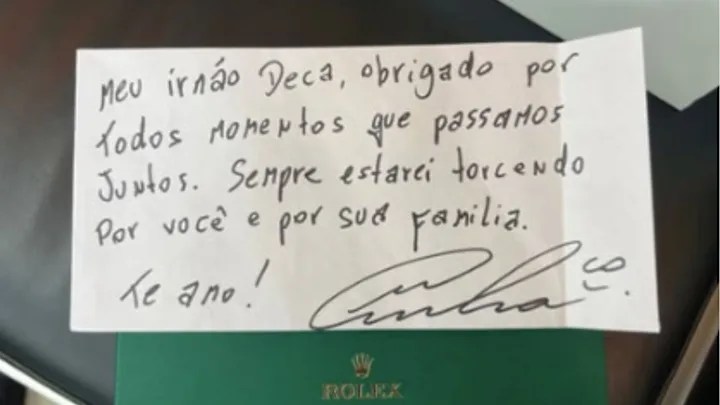 Meu irnão Deca, obrigado por
todos momentos que passamos
Juntos. Sempre estarei torcendo
Por você e por sua Familia.
Te ano!
Cunha
ROLEX